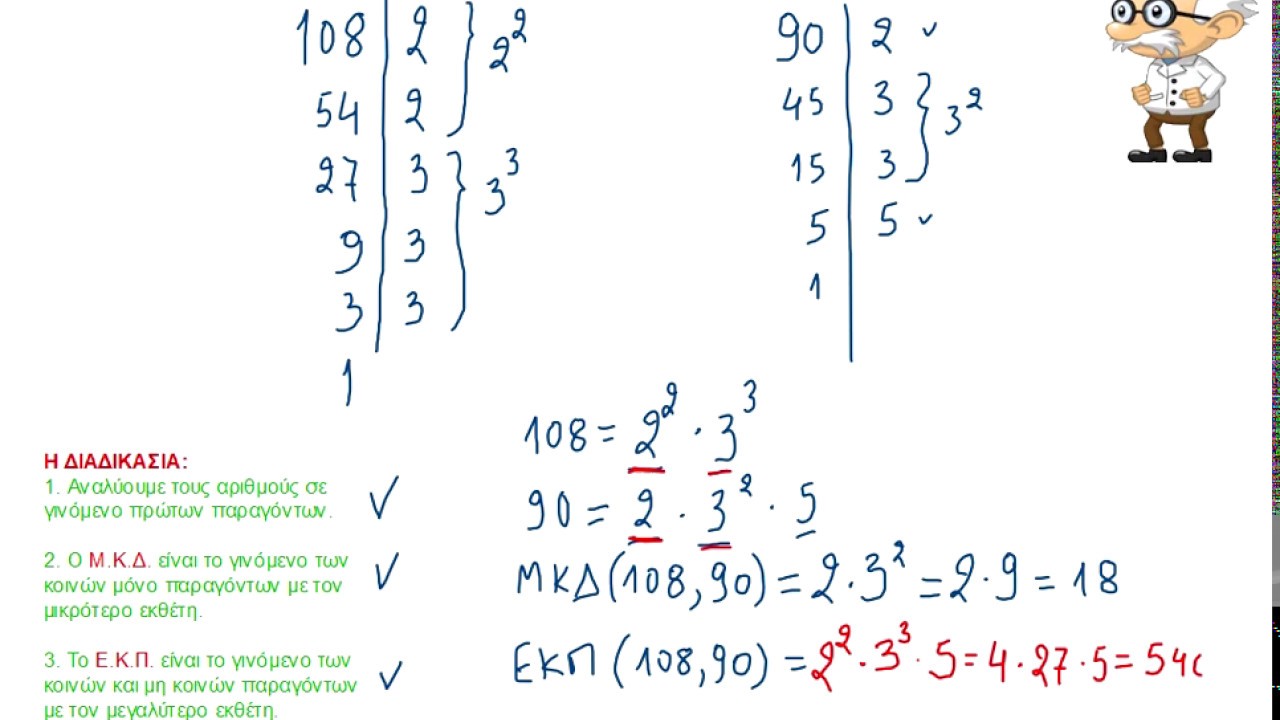 108 | 2 } 2²
54 | 2
27 | 3 } 3³
9 | 3
3 | 3
1
90 | 2 ✓
45 | 3 } 3²
15 | 3
5 | 5 ✓
1
108 = 2² · 3³
90 = 2 · 3² · 5
ΜΚΔ (108, 90) = 2 · 3² = 2 · 9 = 18
ΕΚΠ (108, 90) = 2² · 3³ · 5 = 4 · 27 · 5 = 540
Η ΔΙΑΔΙΚΑΣΙΑ:
1. Αναλύουμε τους αριθμούς σε
γινόμενο πρώτων παραγόντων. ✓
2. Ο Μ.Κ.Δ. είναι το γινόμενο των
κοινών μόνο παραγόντων με τον ✓
μικρότερο εκθέτη.
3. Το Ε.Κ.Π. είναι το γινόμενο των
κοινών και μη κοινών παραγόντων ✓
με τον μεγαλύτερο εκθέτη.